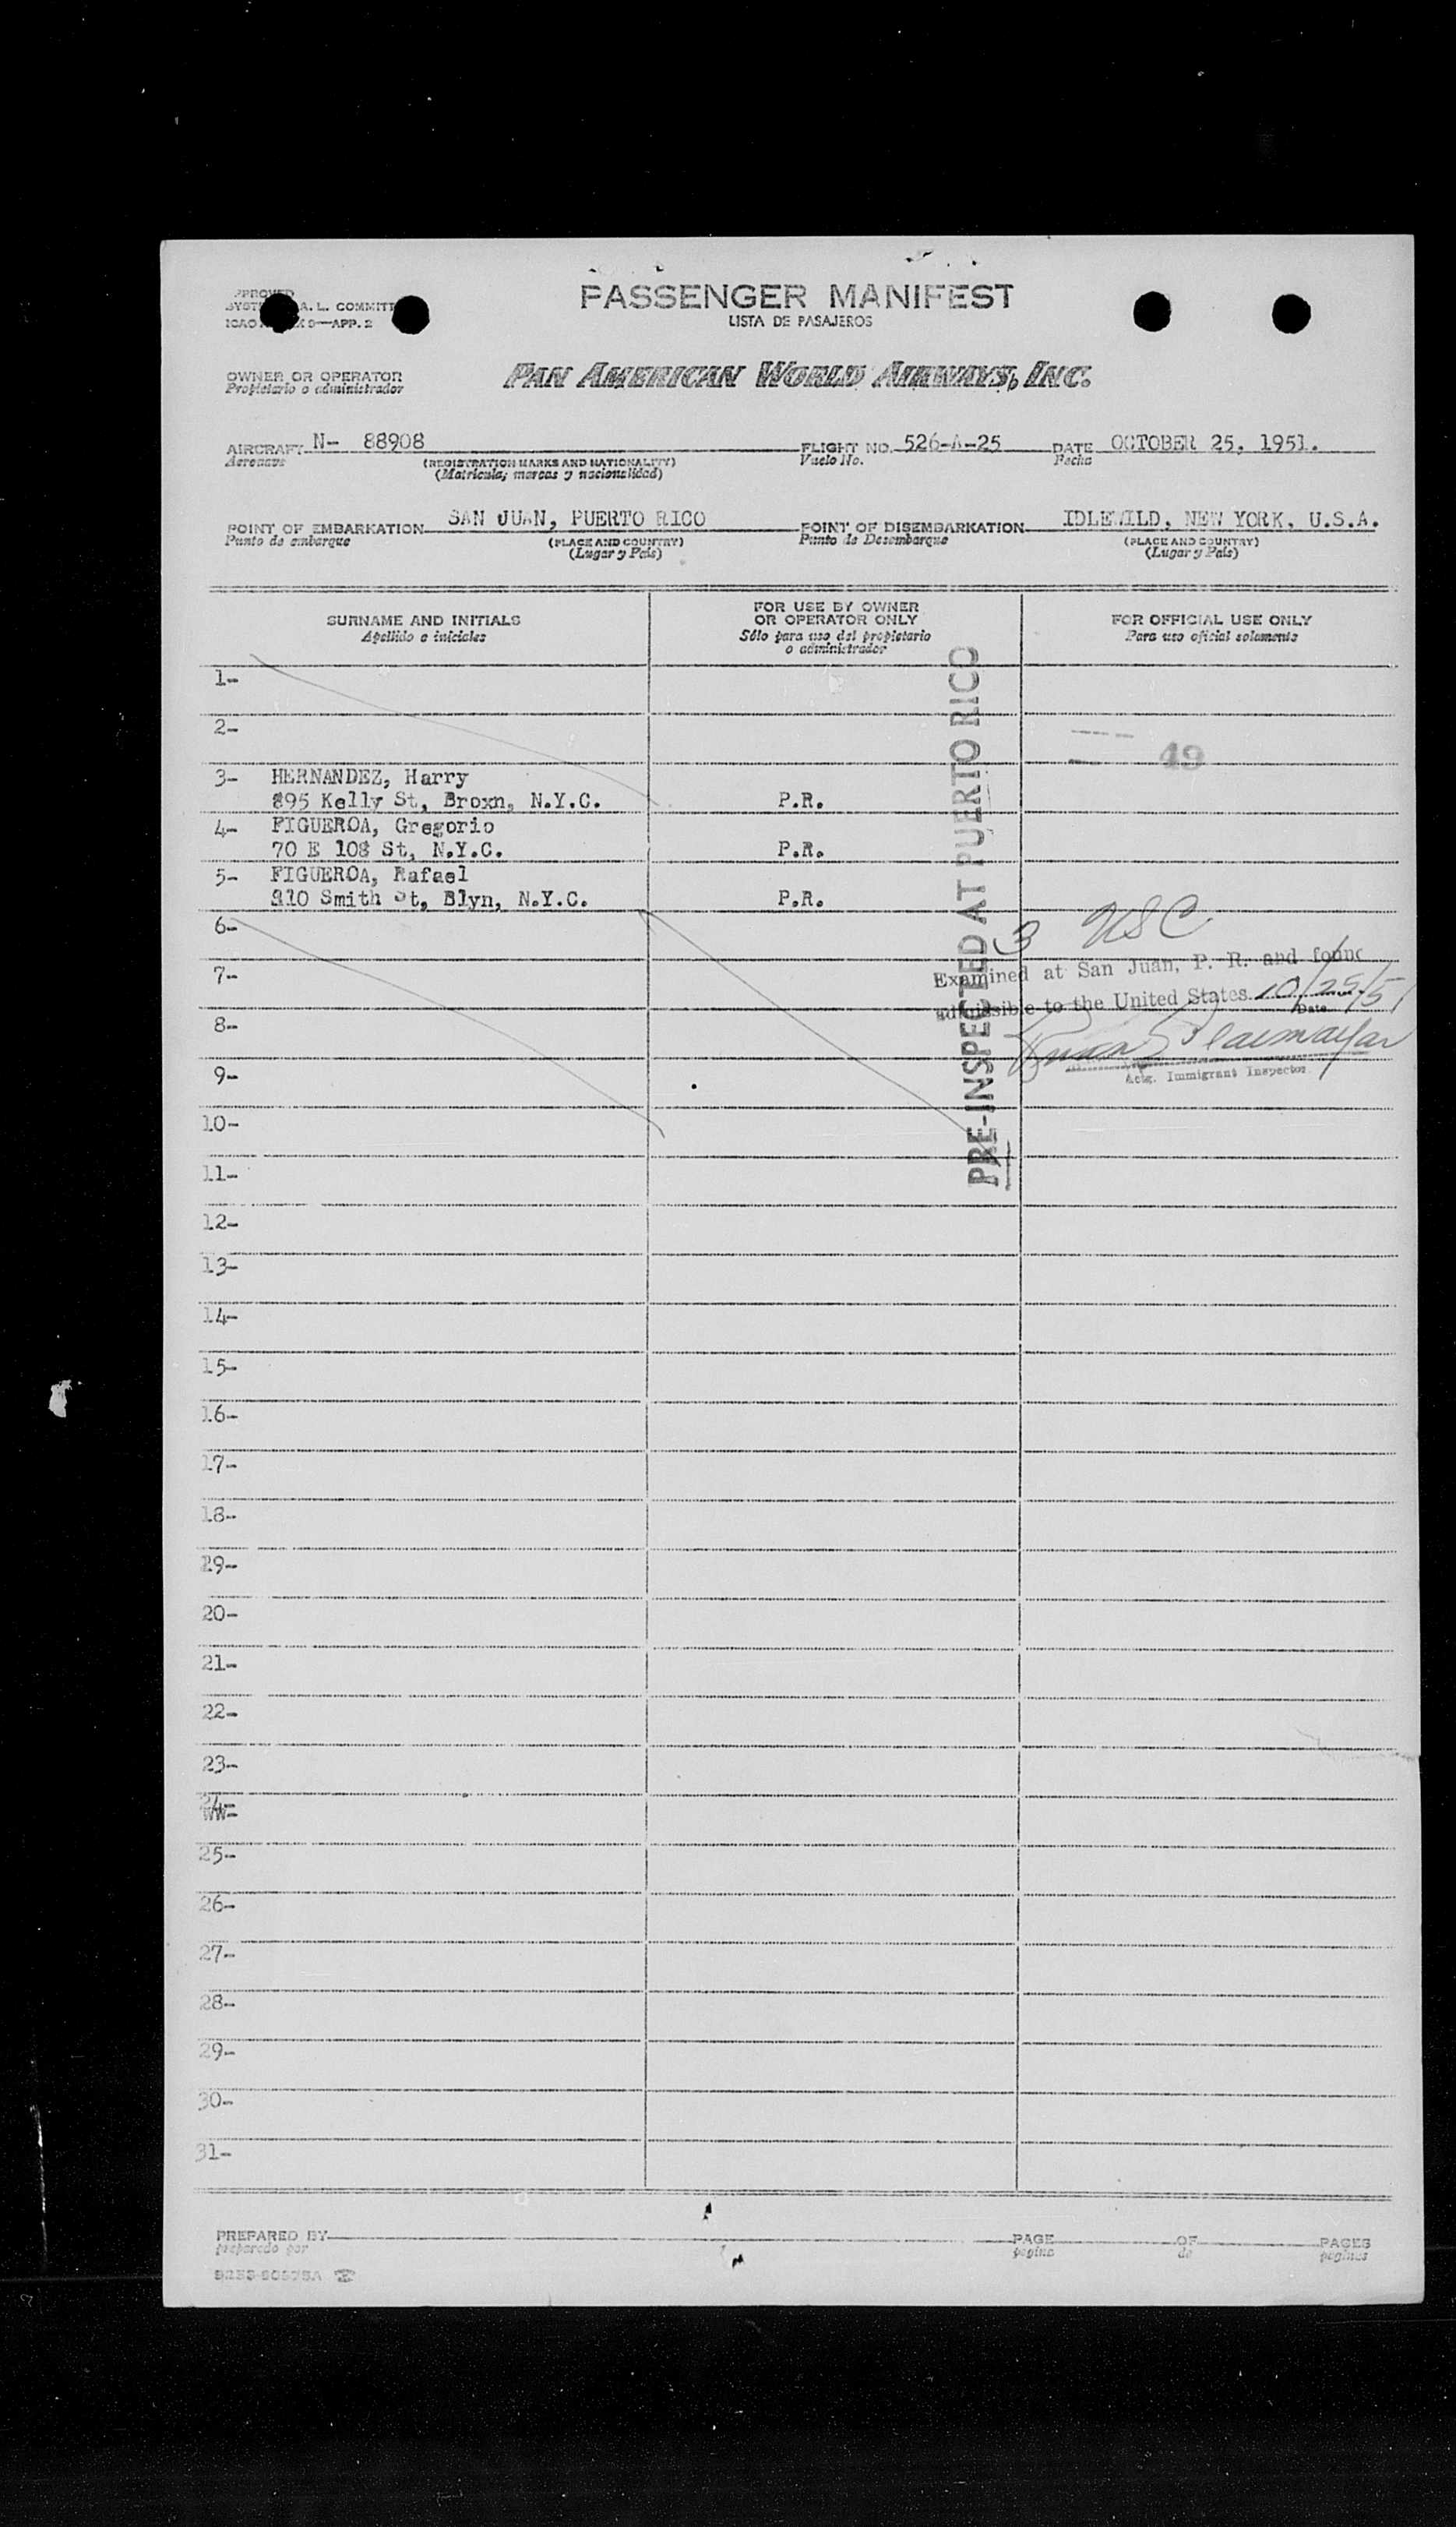 PASSENGER MANIFEST
LISTA DE PASAJEROS
A. L. COMMITT
APP. 2
OWNER OR OPERATOR
Propietario o administrador
PAN AMERICAN WORLD AIRWAYS, INC.
AIRCRAFT N- 88908 FLIGHT NO. 526-A-25 DATE OCTOBER 25, 1951.
Aeronave (REGISTRATION MARKS AND NATIONALITY) Vuelo No. Fecha
(Matricula; marcas y nacionalidad)
POINT OF EMBARKATION SAN JUAN, PUERTO RICO POINT OF DISEMBARKATION IDLEWILD, NEW YORK, U.S.A.
Punto de embarque (PLACE AND COUNTRY) Punto de Desembarque (PLACE AND COUNTRY)
(Lugar y País) (Lugar y País)
SURNAME AND INITIALS FOR USE BY OWNER OR OPERATOR ONLY FOR OFFICIAL USE ONLY
Apellido e iniciales Sólo para uso del propietario o administrador Para uso oficial solamente
1-
2-
49
3- HERNANDEZ, Harry
895 Kelly St, Broxn, N.Y.C. P.R.
4- FIGUEROA, Gregorio
70 E 108 St, N.Y.C. P.R.
5- FIGUEROA, Rafael
210 Smith St, Blyn, N.Y.C. P.R.
PRE-INSPECTED AT PUERTO RICO
6-
3 USC
7-
Examined at San Juan, P. R. and found
admissible to the United States 10/25/51
Date
8-
9-
Actg. Immigrant Inspector
10-
11-
12-
13-
14-
15-
16-
17-
18-
19-
20-
21-
22-
23-
24-
25-
26-
27-
28-
29-
30-
31-
PREPARED BY PAGE OF PAGES
preparado por pagina de paginas